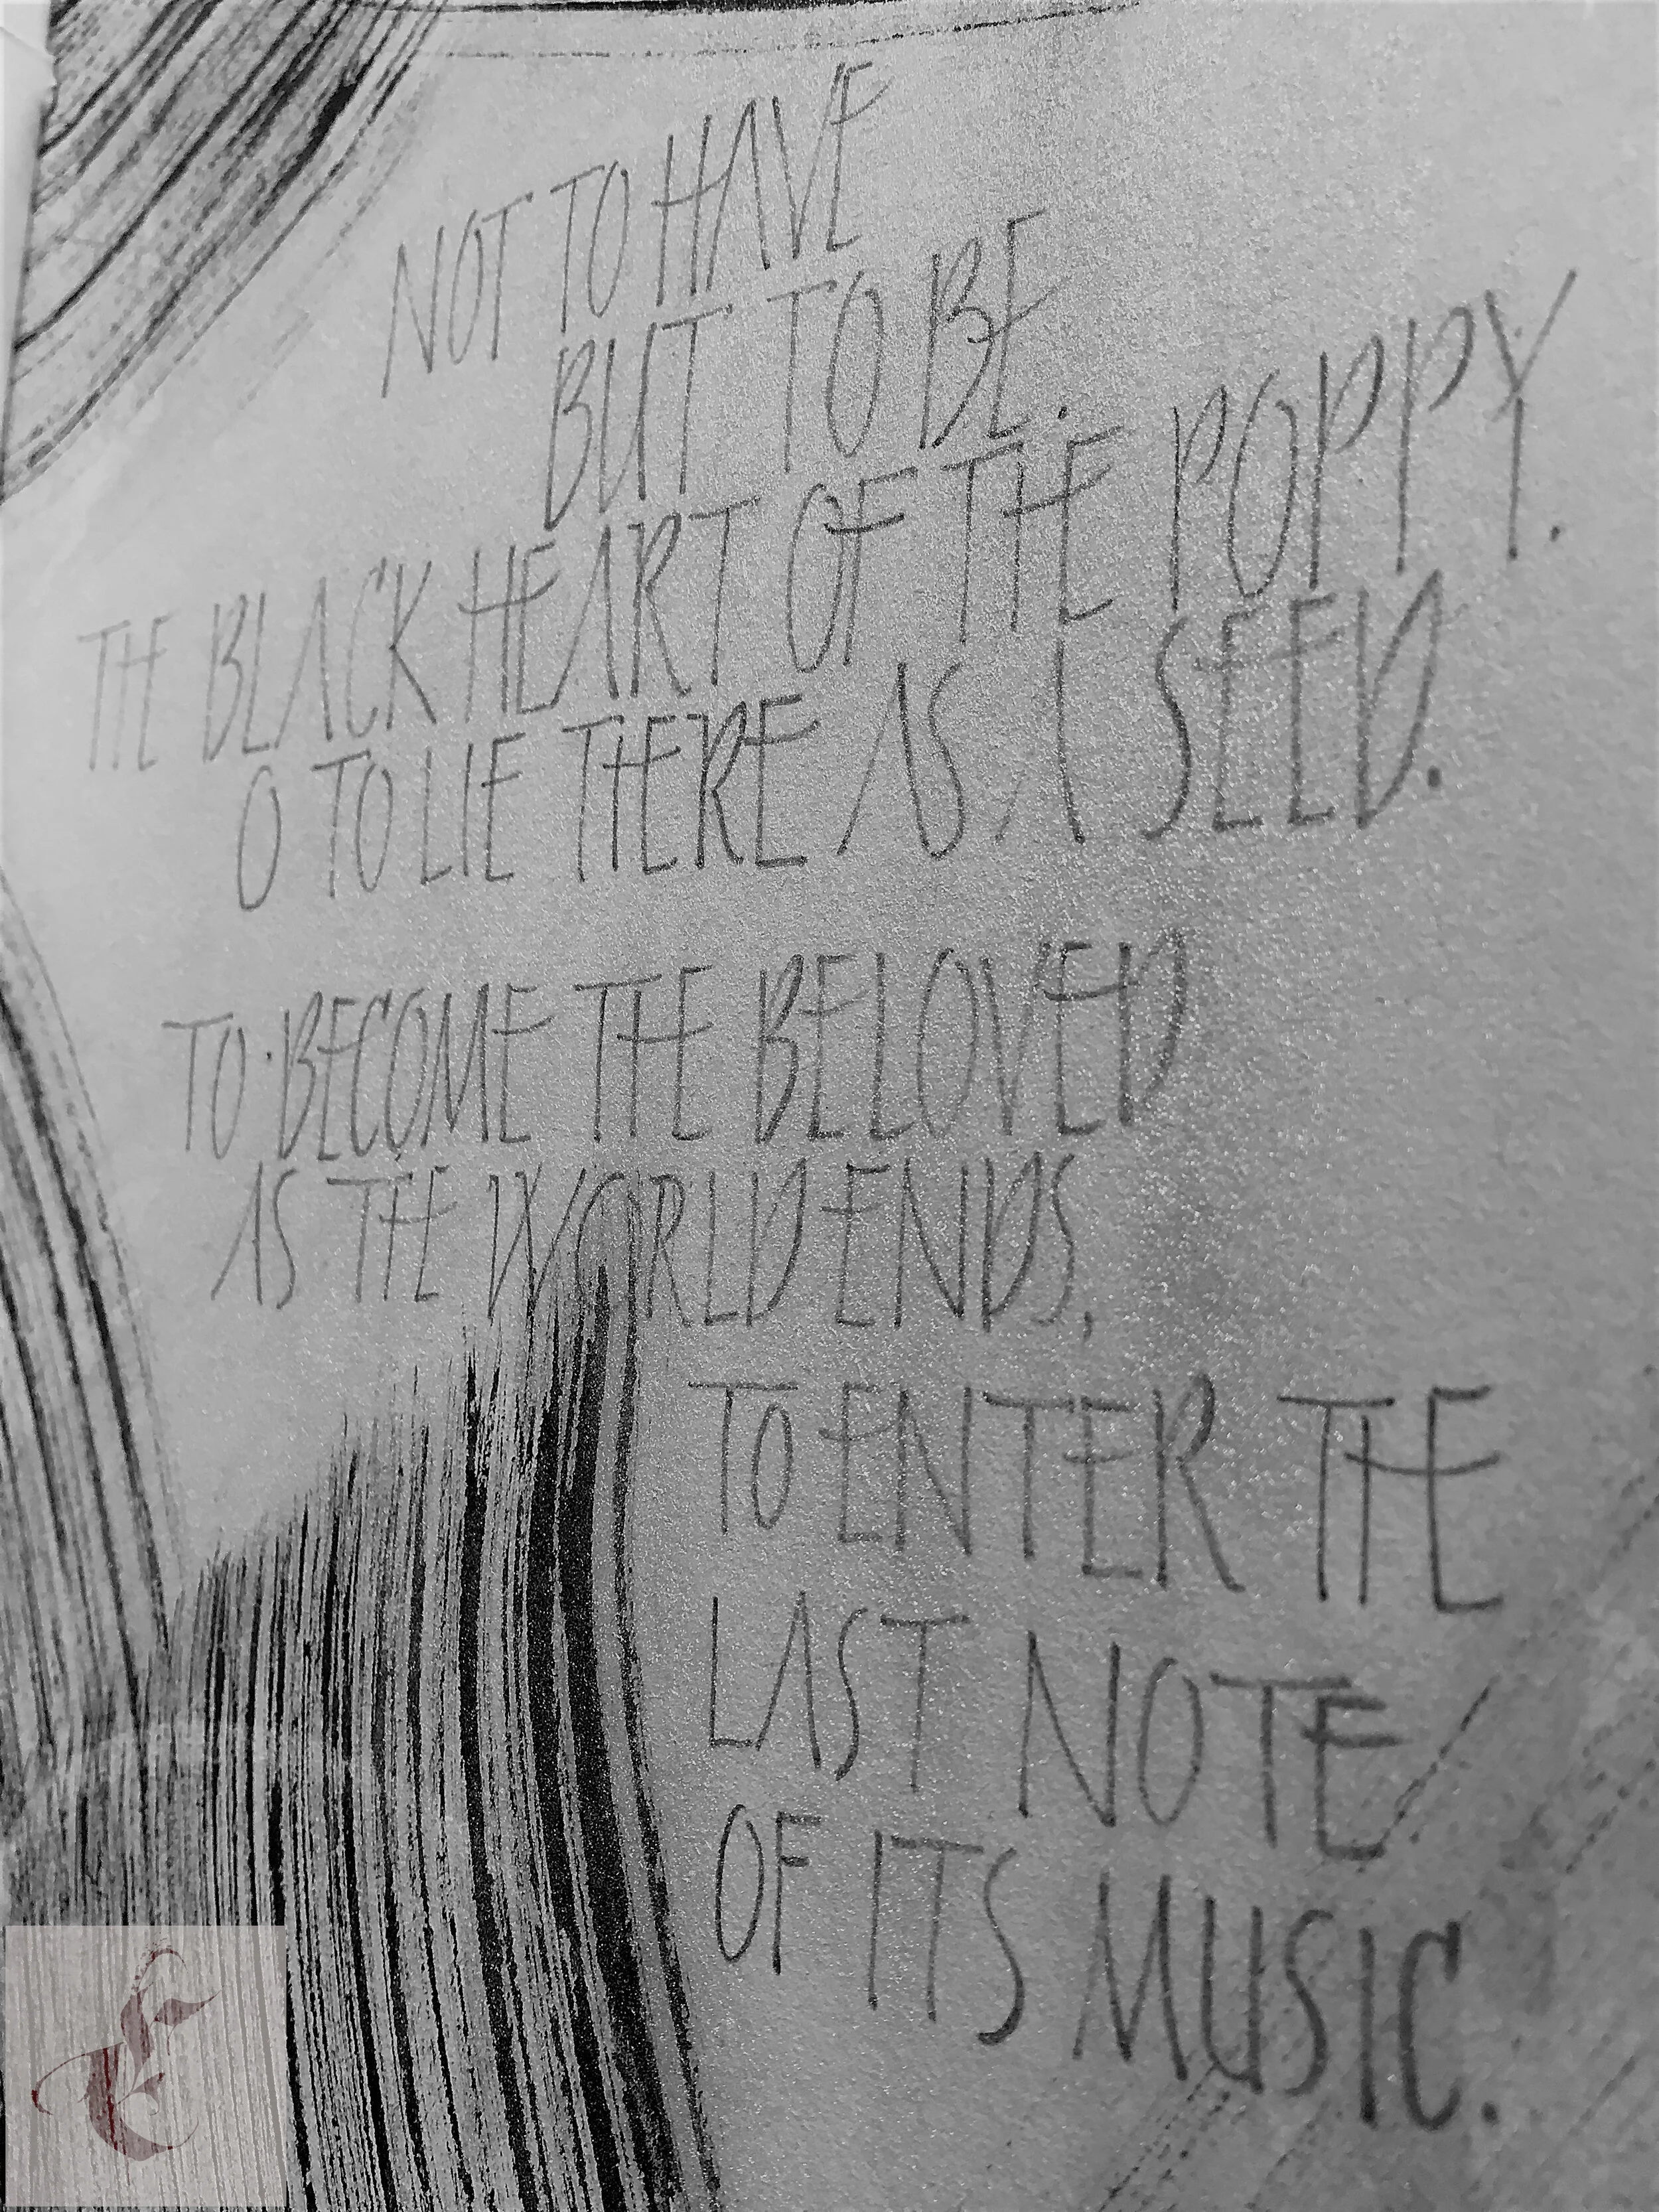 NOT TO HAVE
BUT TO BE.
THE BLACK HEART OF THE POPPY.
O TO LIE THERE AS A SEED.
TO BECOME THE BELOVED
AS THE WORLD ENDS,
TO ENTER THE
LAST NOTE
OF ITS MUSIC.
E